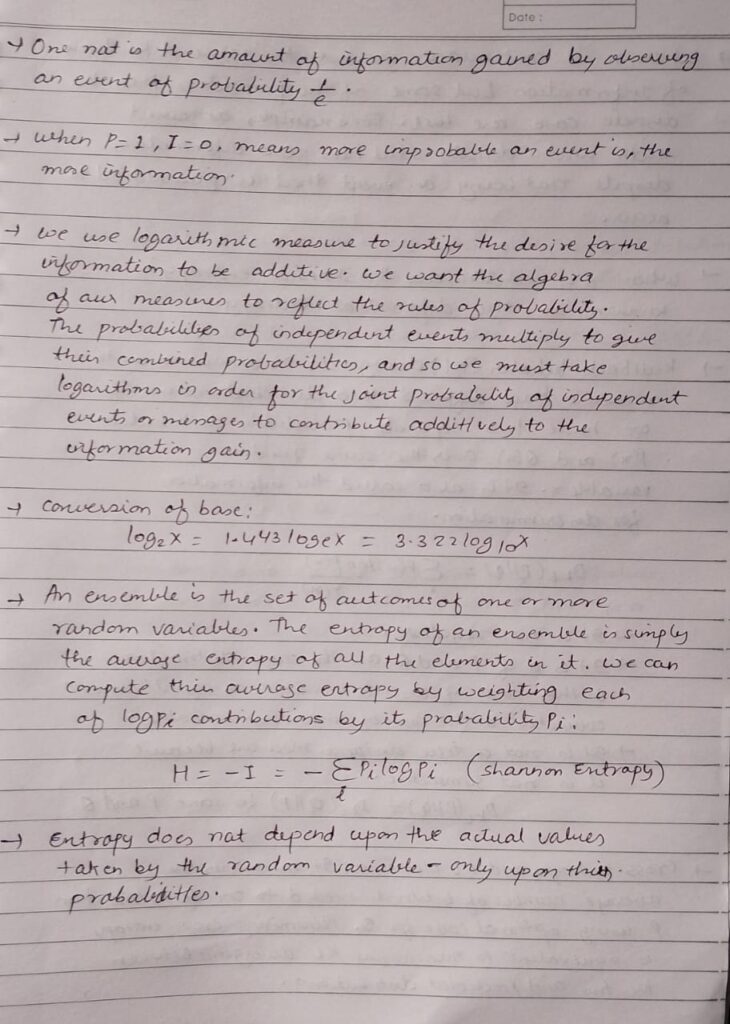 Date :
→ One nat is the amount of information gained by observing
an event of probability 1/e .
→ when P=1, I=0, means more improbable an event is, the
more information.
→ we use logarithmic measure to justify the desire for the
information to be additive. we want the algebra
of our measures to reflect the rules of probability.
The probabilities of independent events multiply to give
their combined probabilities, and so we must take
logarithms in order for the joint probability of independent
events or messages to contribute additively to the
information gain.
→ Conversion of base:
log₂x = 1.443 logex = 3.322 log₁₀x
→ An ensemble is the set of outcomes of one or more
random variables. The entropy of an ensemble is simply
the average entropy of all the elements in it. we can
compute their average entropy by weighting each
of logPi contributions by its probability Pi:
H = -I = - Σi Pi log Pi (shannon Entropy)
→ Entropy does not depend upon the actual values
taken by the random variable - only upon their
probabilities.